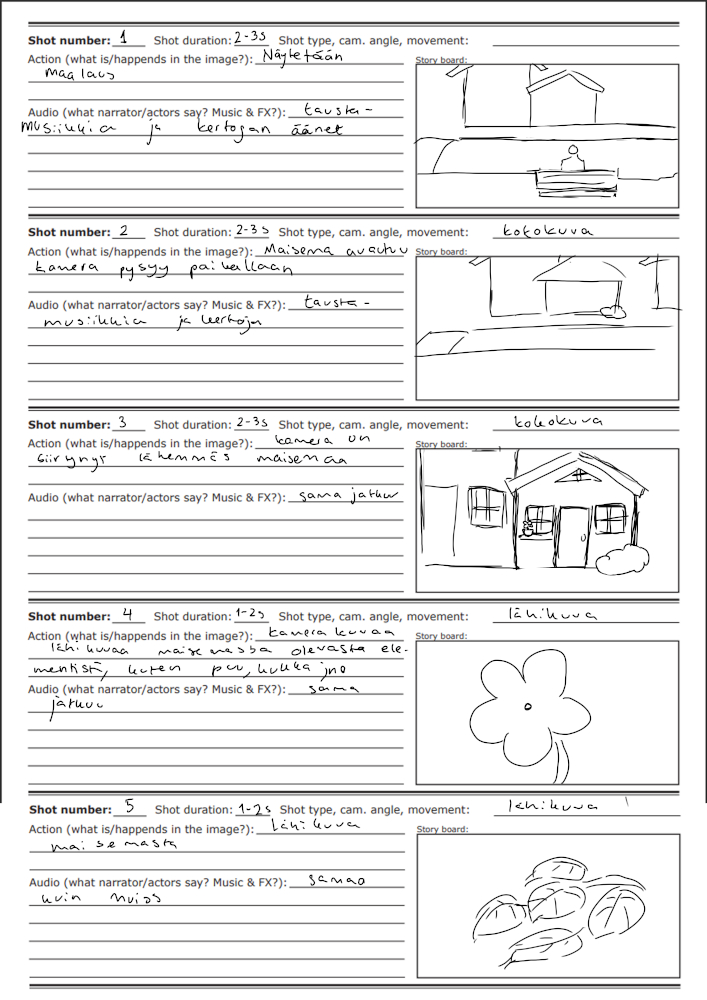 Shot number: 1 Shot duration: 2-3s Shot type, cam. angle, movement:
Action (what is/happends in the image?): Näytetään
maalaus
Story board:
Audio (what narrator/actors say? Music & FX?): tausta-
musiikkia ja kertojan äänet
Shot number: 2 Shot duration: 2-3s Shot type, cam. angle, movement: kokokuva
Action (what is/happends in the image?): Maisema avautuu
kamera pysyy paikallaan
Story board:
Audio (what narrator/actors say? Music & FX?): tausta-
musiikkia ja kertoja
Shot number: 3 Shot duration: 2-3s Shot type, cam. angle, movement: kokokuva
Action (what is/happends in the image?): kamera on
siirynyt lähemmäs maisemaa
Story board:
Audio (what narrator/actors say? Music & FX?): sama jatkuu
Shot number: 4 Shot duration: 1-2s Shot type, cam. angle, movement: lähikuva
Action (what is/happends in the image?): kamera kuvaa
lähikuvaa maisemassa olevasta ele-
mentistä, kuten puu, kukka jne
Story board:
Audio (what narrator/actors say? Music & FX?): sama
jatkuu
Shot number: 5 Shot duration: 1-2s Shot type, cam. angle, movement: lähikuva
Action (what is/happends in the image?): Lähikuva
maisemasta
Story board:
Audio (what narrator/actors say? Music & FX?): samaa
kuin muios